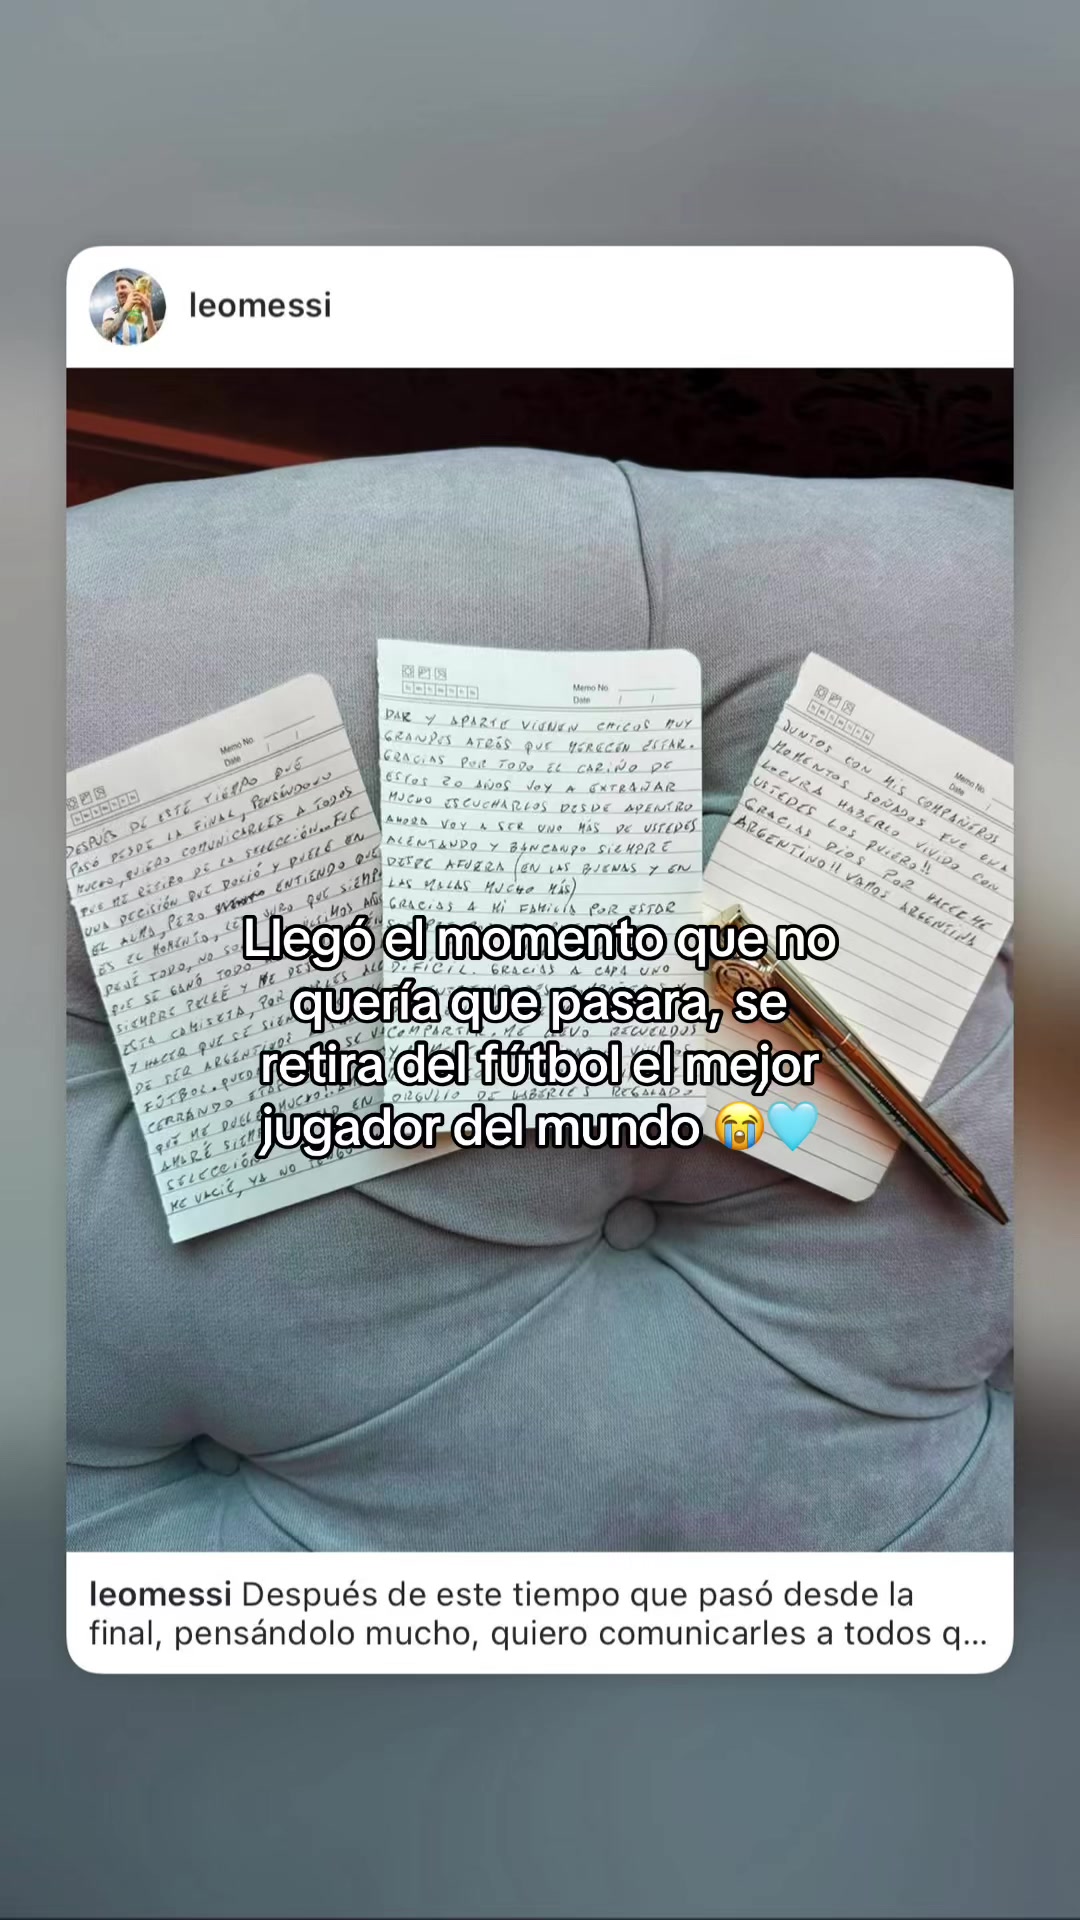 leomessi
Memo No.
Date / /
DESPUÉS DE ESTE TIEMPO QUE
PASÓ DESDE LA FINAL, PENSÁNDOLO
MUCHO, QUIERO COMUNICARLES A TODOS
QUE ME RETIRO DE LA SELECCIÓN... FUE
UNA DECISIÓN QUE DOLIÓ Y DUELE EN
EL ALMA, PERO ENTIENDO QUE
ES EL MOMENTO, LES JURO QUE SIEMP
DEJÉ TODO, NO SO
QUE SE GANÓ TODO
SIEMPRE PELEÉ Y ME DE
ESTA CAMISETA, POR
Y HACER QUE SE SIEN
DE SER ARGENTINOS
FÚTBOL. QUED
CERRANDO ETAP
QUE ME DUELE MUCHO
AMARÉ SIEM
SELECCIÓN
ME VACIÉ, YA NO TENGO
Memo No.
Date / /
DAR Y APARTE VIENEN CHICOS MUY
GRANDES ATRÁS QUE MERECEN ESTAR.
GRACIAS POR TODO EL CARIÑO DE
ESTOS 20 AÑOS VOY A EXTRAÑAR
MUCHO ESCUCHARLOS DESDE ADENTRO
AHORA VOY A SER UNO MÁS DE USTEDES
ALENTANDO Y BANCANDO SIEMPRE
DESDE AFUERA (EN LAS BUENAS Y EN
LAS MALAS MUCHO MÁS)
GRACIAS A MI FAMILIA POR ESTAR
DIFÍCIL. GRACIAS A CADA UNO
COMPARTIR. ME LLEVO RECUERDOS
ORGULLO DE HABERLES REGALADO
Memo No.
Date /
JUNTOS CON MIS COMPAÑEROS
MOMENTOS SOÑADOS FUE UNA
LOCURA HABERLO VIVIDO CON
USTEDES LOS QUIERO!!
GRACIAS DIOS POR HACERME
ARGENTINO!! VAMOS ARGENTINA
Llegó el momento que no
quería que pasara, se
retira del fútbol el mejor
jugador del mundo 😭🩵
leomessi Después de este tiempo que pasó desde la
final, pensándolo mucho, quiero comunicarles a todos q...